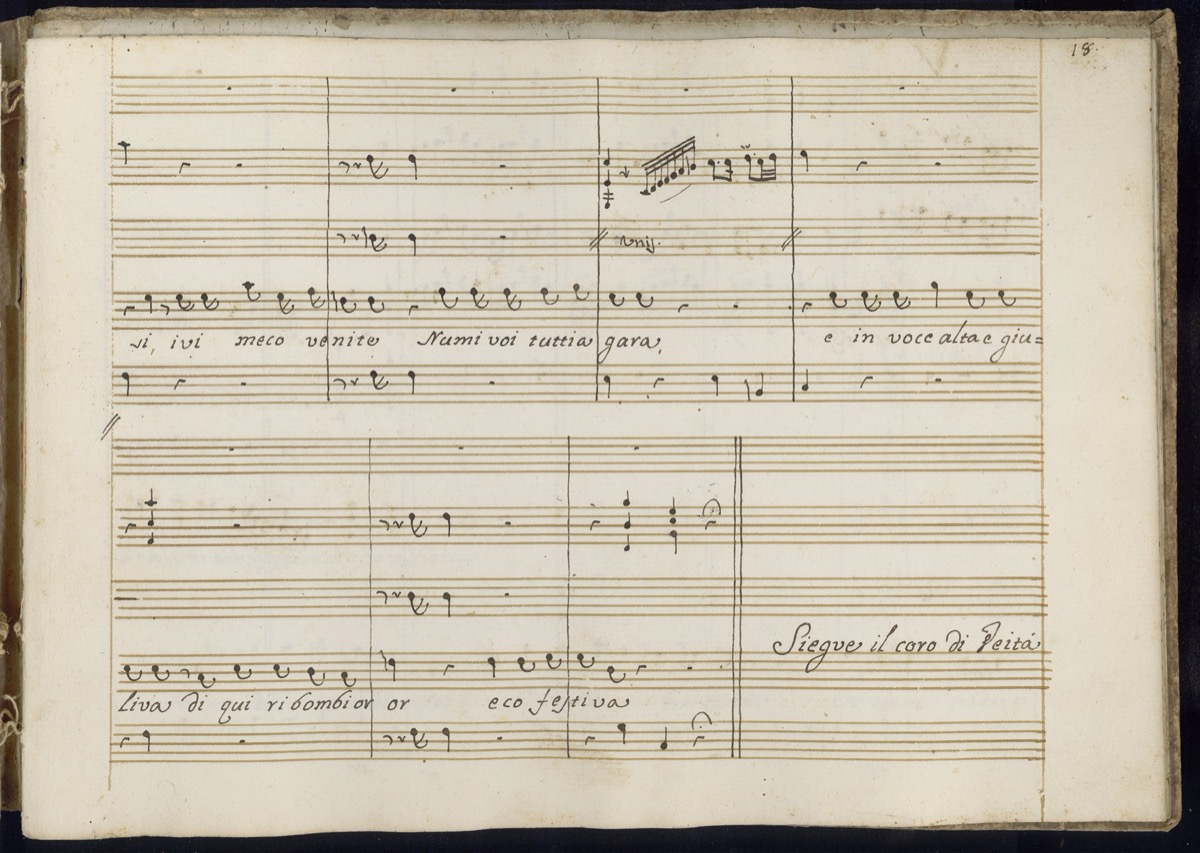 18.
unis.
si, ivi meco venite Numi voi tutti a gara, e in voce alta e giu=
Siegue il coro di Deità
liva di qui ribombi or or eco festiva